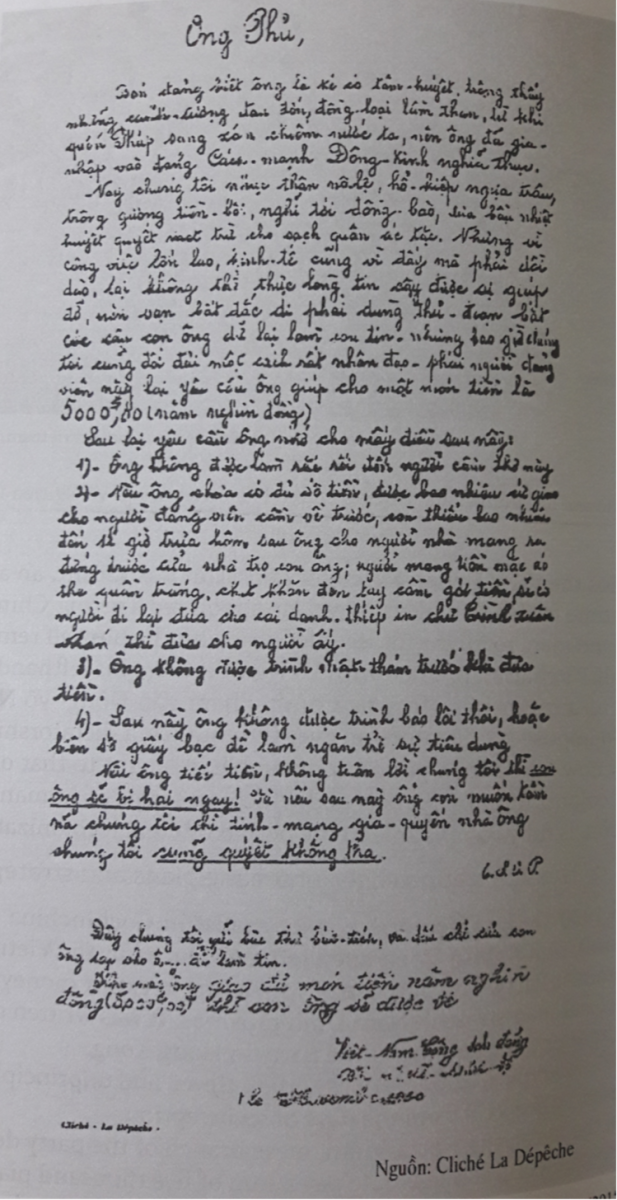 Ông Phủ,
Bọn đảng biết ông là kẻ có tâm-huyết, trông thấy
những tình-tượng đau đớn, đồng-loại lầm than, từ khi
quân Pháp sang xâm chiếm nước ta, nên ông đã gia-
nhập vào đảng Cách-mạnh Đông-Kinh nghĩa thục.
Nay chúng tôi nhục thân nô lệ, hổ-kiếp ngựa trâu,
trông gương tiền-bối, nghĩ tới đồng-bào, bầu nhiệt
huyết quyết trừ cho sạch quân ác tặc. Nhưng vì
công việc lớn lao, kinh-tế cũng vì đấy mà phải dồi
dào, lại không thì thực lòng tin cậy được sự giúp
đỡ, nên vạn bất đắc dĩ phải dùng thủ-đoạn bắt
các cậu con ông để lại làm con tin. nhưng bao giờ chúng
tôi cũng đối đãi một cách rất nhân đạo. phái người đảng
viên này lại yêu cầu ông giúp cho một món tiền là
5000$00 (năm nghìn đồng)
Sau lại yêu cầu ông nhớ cho mấy điều sau này:
1)- Ông không được làm rắc rối đến người cầm thơ này
2)- Nếu ông chưa có đủ số tiền, được bao nhiêu sẽ giao
cho người đảng viên cầm về trước, còn thiếu bao nhiêu
đến 12 giờ trưa hôm sau ông cho người nhà mang ra
đứng trước cửa nhà trọ con ông; người mang tiền mặc áo
the quần trắng, chít khăn đen tay cầm gói tiền, sẽ có
người đi lại đưa cho cái danh-thiếp in chữ Trịnh Xuân
thì đưa cho người ấy.
3)- Ông không được trình mật thám trước khi đưa
tiền.
4)- Sau này ông không được trình báo lôi thôi, hoặc
biên số giấy bạc để làm ngăn trở sự tiêu dùng
Nếu ông tiếc tiền, không tuân lời chúng tôi thì con
ông sẽ bị hại ngay! Và nếu sau này ông còn muốn
ra chúng tôi thì tính-mạng gia-quyến nhà ông
chúng tôi cũng quyết không tha.
Đây chúng tôi gửi bức thư bưu-tiến, và dấu chỉ của con
ông lại cho ông làm tin.
Khi nào ông giao đủ món tiền năm nghìn
đồng (5000$00) thì con ông sẽ được về
Việt-Nam Cộng sản đảng
Cliché - La Dépêche -
Nguồn: Cliché La Dépêche